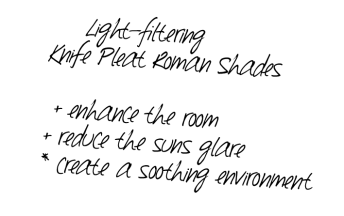 Light-filtering
Knife Pleat Roman Shades
+ enhance the room
+ reduce the suns glare
* create a soothing environment